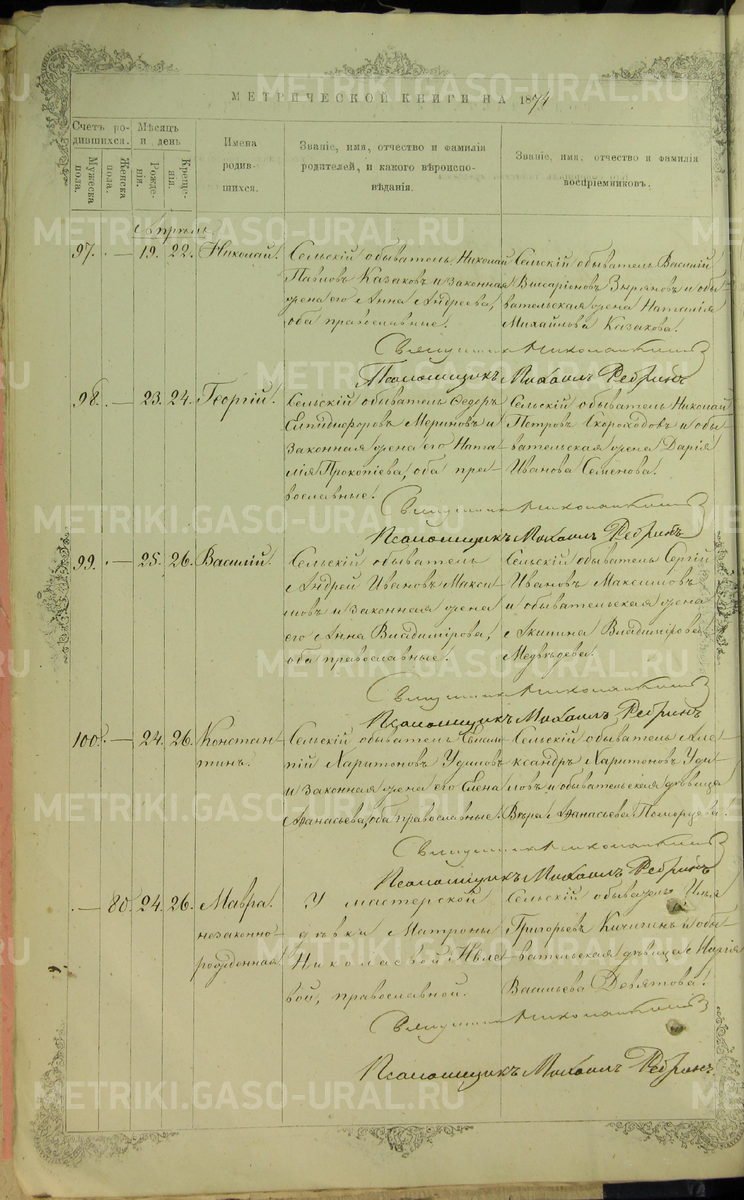 МЕТРИЧЕСКОЙ КНИГИ НА 1874
Счетъ ро-
дившихся.
Мужеска
пола.
Женска
пола.
Мѣсяцъ
и день
Рожде-
нія.
Креще-
нія.
Имена
родив-
шихся.
Званіе, имя, отчество и фамилія
родителей, и какого вѣроиспо-
вѣданія.
Званіе, имя, отчество и фамилія
воспріемниковъ.
Апрѣль
97. — 19. 22. Николай.
Сельскій обыватель Николай
Павловъ Казаковъ и законная
жена его Анна Андреева,
оба православные.
Сельскій обыватель Василій
Виссаріоновъ Зыряновъ и обы-
вательская жена Наталія
Михайлова Казакова.
Священникъ
Псаломщикъ Михаилъ Ребринъ
98. — 23. 24. Георгій.
Сельскій обыватель Ѳедоръ
Мериновъ и
законная жена его Ната-
лія Прокопіева, оба пра-
вославные.
Сельскій обыватель Николай
Петровъ Скороходовъ и обы-
вательская жена Дарія
Иванова Семенова.
Священникъ
Псаломщикъ Михаилъ Ребринъ
99. — 25. 26. Василій.
Сельскій обыватель
Андрей Ивановъ Макси-
мовъ и законная жена
его Анна Владимірова,
оба православные.
Сельскій обыватель Сергій
Ивановъ Максимовъ
и обывательская жена
Владимірова
Медвѣдева.
Священникъ
Псаломщикъ Михаилъ Ребринъ
100. — 24. 26. Констан-
тинъ.
Сельскій обыватель
Харитоновъ Удиловъ
и законная жена его Елена
Аѳанасьева, оба православные.
Сельскій обыватель Але-
ксандръ Харитоновъ Уди-
ловъ и обывательская дѣвица
Вѣра Аѳанасьева Поморцева.
Священникъ
Псаломщикъ Михаилъ Ребринъ
— 80. 24. 26. Мавра.
незаконно-
рожденная.
У мастерской
дѣвки Матроны
Николаевой
вой, православной.
Сельскій обыватель Илья
Григорьевъ Кичигинъ и обы-
вательская дѣвица Марія
Васильева Девятова.
Священникъ
Псаломщикъ Михаилъ Ребринъ
METRIKI.GASO-URAL.RU